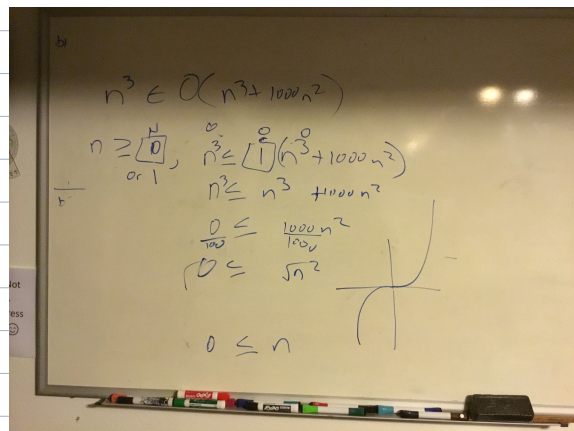 b)
n³ ∈ O(n³+1000n²)
N
n ≥ 0, n³ ≤ 1 (n³+1000n²)
or 1
n³ ≤ n³ +1000n²
0/100 ≤ 1000n²/1000
√0 ≤ √n²
0 ≤ n